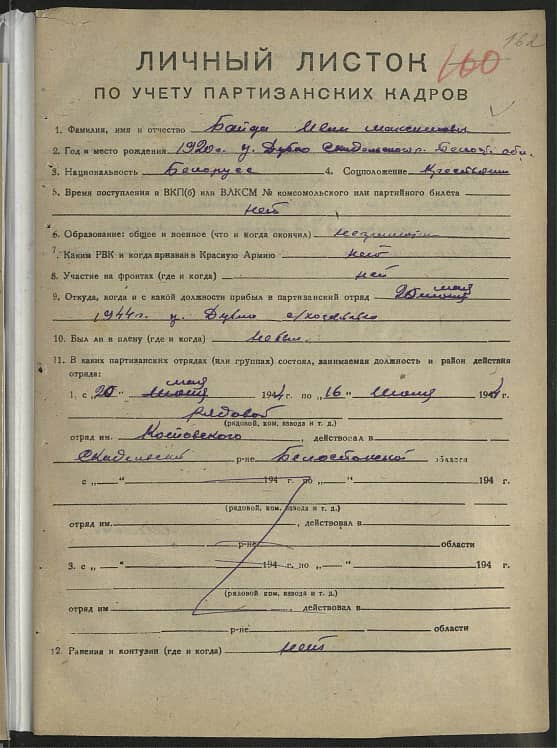 162
160
ЛИЧНЫЙ ЛИСТОК
ПО УЧЕТУ ПАРТИЗАНСКИХ КАДРОВ
1. Фамилия, имя и отчество Байда
2. Год и место рождения 1920 г. д. Дубно Скидельского р. Белост. обл.
3. Национальность Белорусс 4. Соцположение Крестьянин
5. Время поступления в ВКП(б) или ВЛКСМ № комсомольского или партийного билета
нет
6. Образование: общее и военное (что и когда окончил)
7. Каким РВК и когда призван в Красную Армию нет
8. Участие на фронтах (где и когда) нет
9. Откуда, когда и с какой должности прибыл в партизанский отряд 20 мая
1944 г. д. Дубно
10. Был ли в плену (где и когда) не был.
11. В каких партизанских отрядах (или группах) состоял, занимаемая должность и район действия
отряда:
1. с „20" мая 1944 г. по „16" июля 1944 г.
рядовой
(рядовой, ком. взвода и т. д.)
отряд им. Костовского, действовал в
Скидельский р-не Белостокской области
с „—" 194 г. по „—" 194 г.
(рядовой, ком. взвода и т. д.)
отряд им. , действовал в
р-не области
3. с „—" 194 г. по „—" 194 г.
(рядовой, ком. взвода и т. д.)
отряд им , действовал в
р-не области
12. Ранения и контузии (где и когда) нет